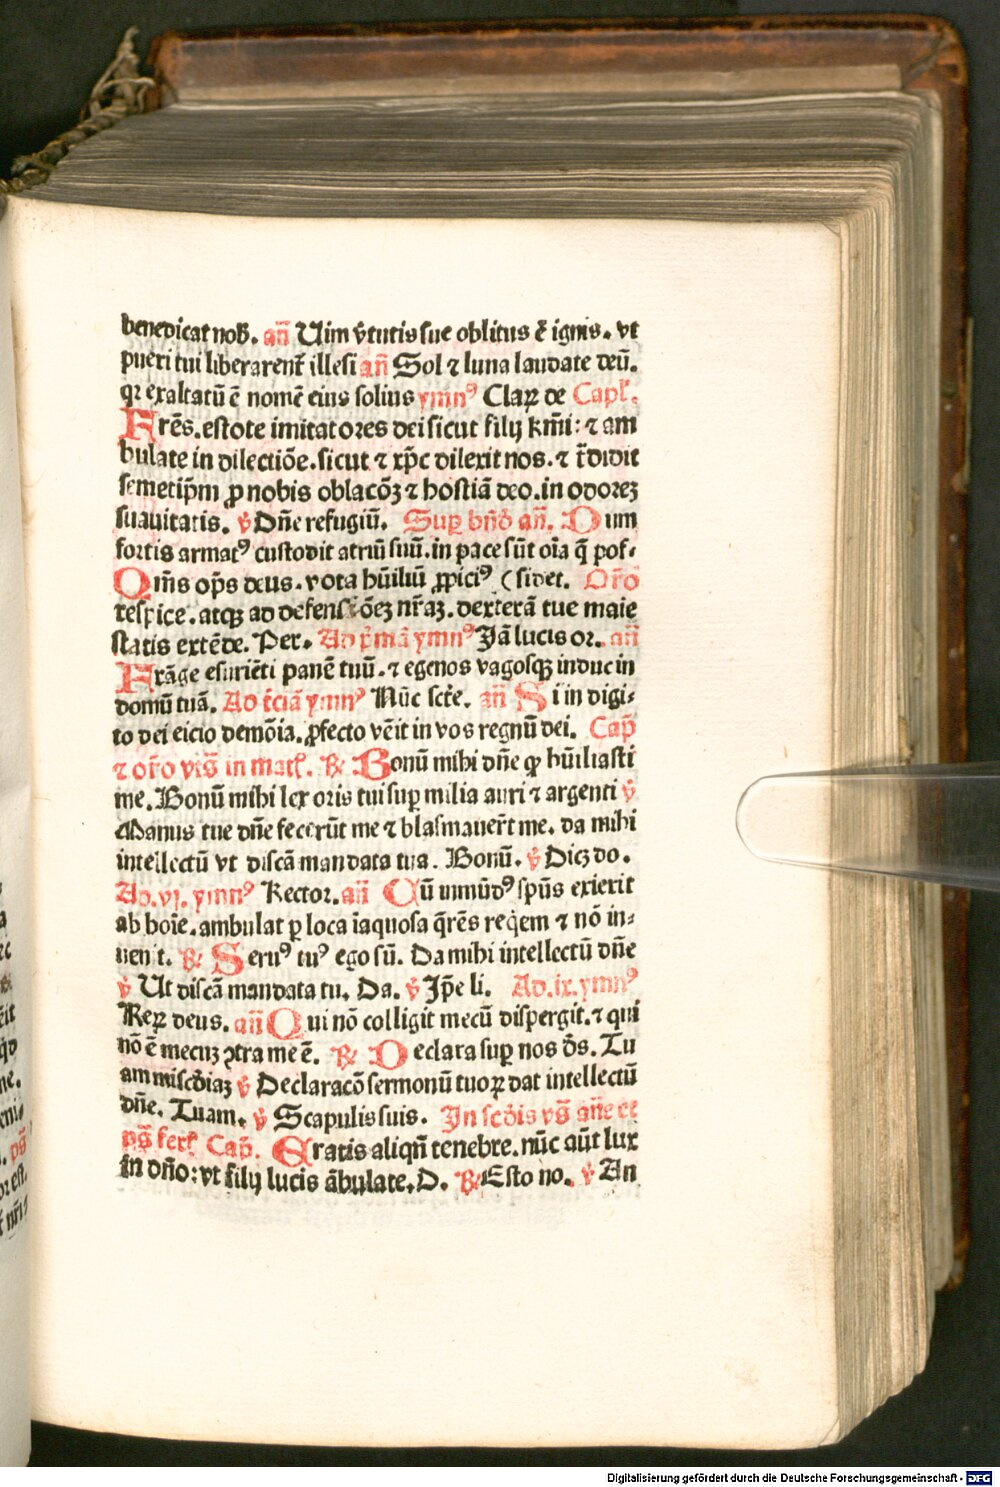 benedicat nob̄. an̄ Uim v̄tutis sue oblitus ē ignis. vt
pueri tui liberarent᷑ illesi an̄ Sol ⁊ luna laudate deū.
qꝛ exaltatū ē nomē eius solius ymnꝰ Claꝝ de Capl̓.
Frēs. estote imitatores dei sicut filij km̄i: ⁊ am
bulate in dilectiōe. sicut ⁊ xp̄c dilexit nos. ⁊ t᷑didit
semetip̄m ꝓ nobis oblacōꝫ ⁊ hostiā deo. in odoreꝫ
suauitatis. ℣ Dn̄e refugiū. Suꝑ bn̄d̄ an̄. Dum
fortis armatꝰ custodit atriū suū. in pace sūt oīa q̄ pos-
Qm̄s op̄s deus. vota hūiliū ꝓpiciꝰ (sidet. Or̄o
respice. atqꝫ ad defensiōeꝫ nr̄aꝫ. dexterā tue maie
statis extēde. Per. Ad p̄mā ymnꝰ Jā lucis or. an̄
Frāge esuriēti panē tuū. ⁊ egenos vagosqꝫ induc in
domū tuā. Ad t̄ciā ymnꝰ Nūc sct̄e. an̄ Si in digi-
to dei eicio demōia. ꝓfecto vēit in vos regnū dei. Cap̄
⁊ or̄o vt̄s̄ in mat̓. ℟ Bonū mihi dn̄e qꝫ hūiliasti
me. Bonū mihi lex oris tui suꝑ milia auri ⁊ argenti ℣
Manus tue dn̄e fecerūt me ⁊ plasmauer̄t me. da mihi
intellectū vt discā mandata tua. Bonū. ℣ Dicꝫ do.
Ad. vj. ymnꝰ Rector. an̄ Cū inmūdꝰ sp̄us exierit
ab hoīe. ambulat ꝑ loca īaquosa q̄rēs reqi̇em ⁊ nō in-
uenit. ℟ Seruꝰ tuꝰ ego sū. Da mihi intellectū dn̄e
℣ Ut discā mandata tu. Da. ℣ Jp̄e li. Ad. ix. ymnꝰ
Reꝝ deus. an̄ Qui nō colligit mecū dispergit. ⁊ qui
nō ē mecuꝫ ꝯtra me ē. ℟ Declara suꝑ nos d̄s. Tu
am mīscd̄iaꝫ ℣ Declaracō sermonū tuoꝝ dat intellectū
dn̄e. Tuam. ℣ Scapulis suis. In scd̄is vs̄ an̄e et
ps̄ fer̄. Cap̄. Eratis aliqn̄ tenebre. nūc aūt lux
in dn̄o: vt filij lucis ābulate. D. ℟ Esto no. ℣ An
Digitalisierung gefördert durch die Deutsche Forschungsgemeinschaft - DFG